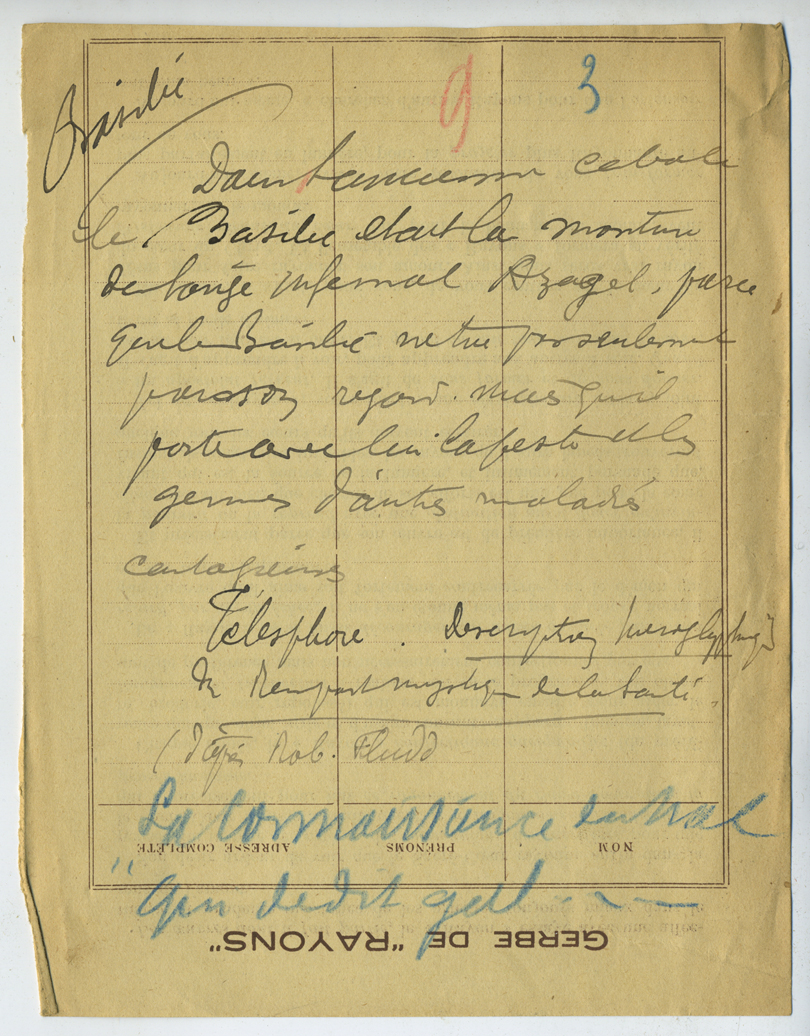 Basilic
9 3
Dans l'ancienne cabale
le Basilic etait la monture
de l'ange infernal Azagel, parce
que le Basilic ne tue pas seulement
par son regard. mais qu'il
porte avec lui la peste et les
germes d'autres maladies
contagieuses
Télesphore. Description hieroglyphique
Du Rempart mystique de la Santé.
(d'après Rob. Fludd
La connaissance du Mal
NOM PRÉNOMS ADRESSE COMPLÈTE
GERBE DE "RAYONS"